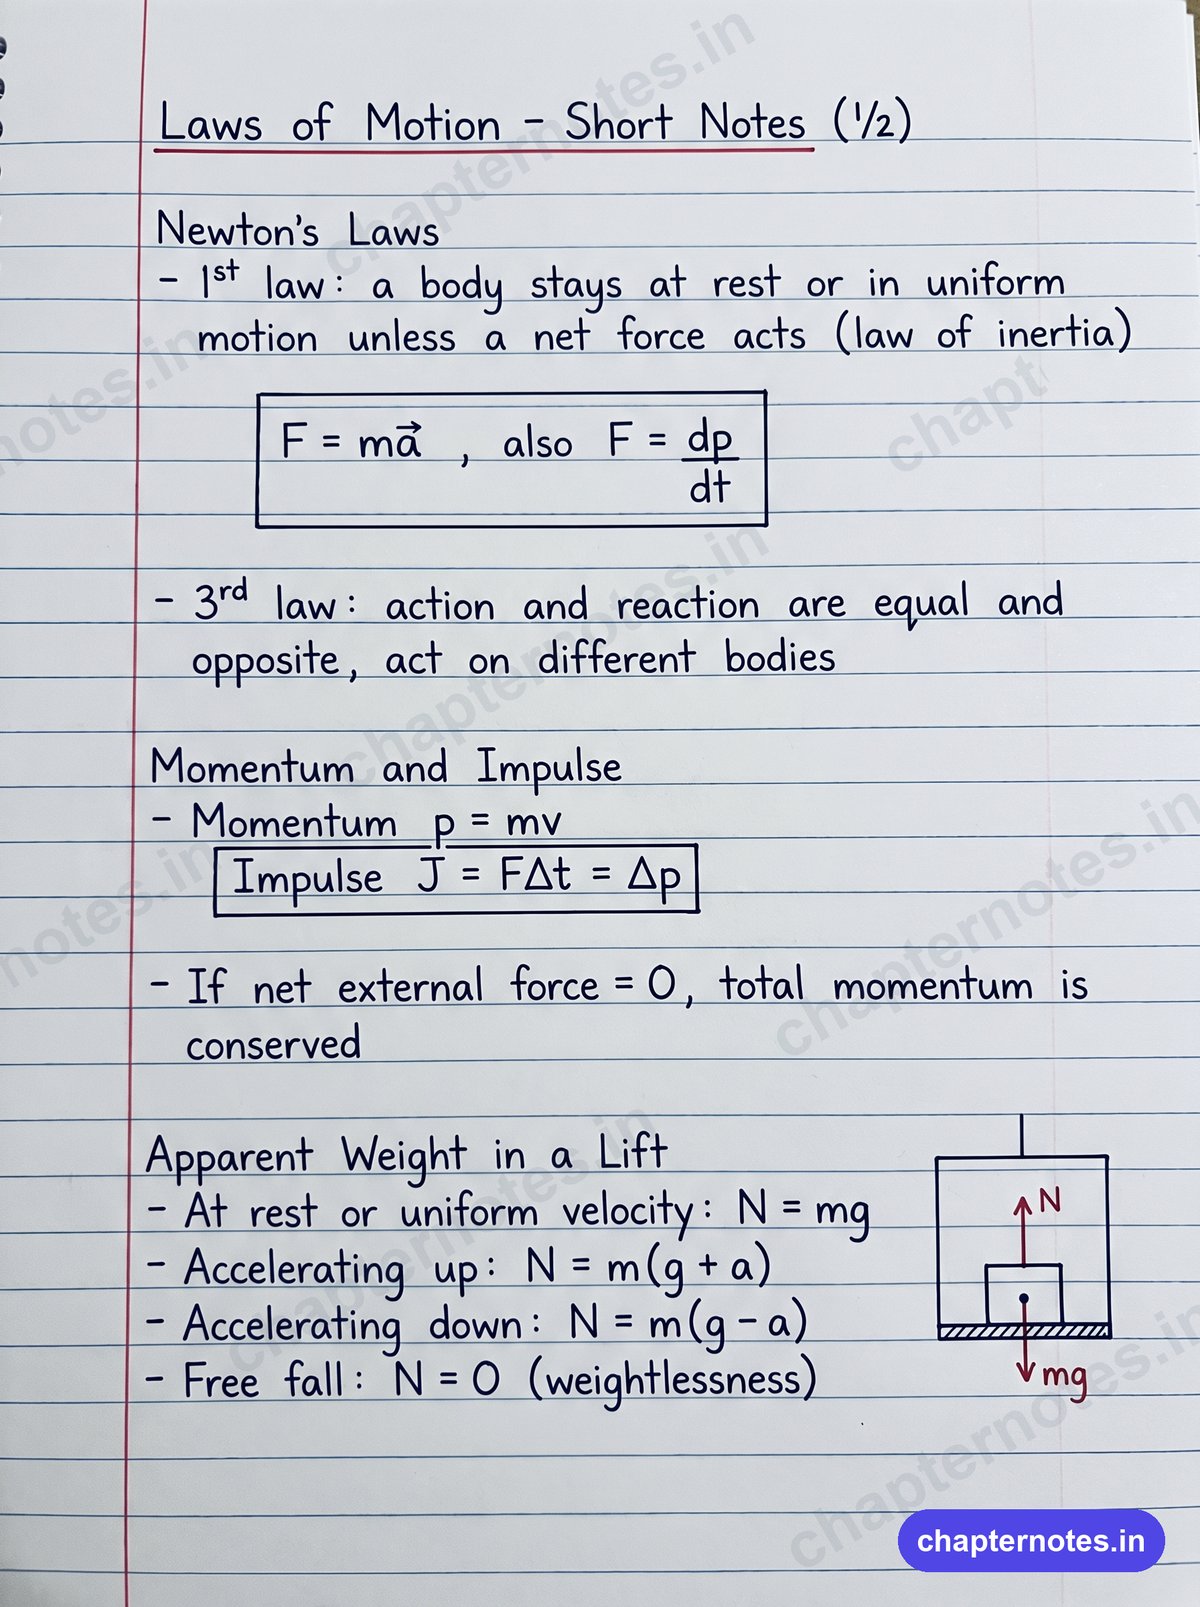 Laws of Motion – Short Notes (1/2)
Newton's Laws
– 1st law: a body stays at rest or in uniform
motion unless a net force acts (law of inertia)
F = ma⃗ , also F = dp/dt
– 3rd law: action and reaction are equal and
opposite, act on different bodies
Momentum and Impulse
– Momentum p = mv
Impulse J = FΔt = Δp
– If net external force = 0, total momentum is
conserved
Apparent Weight in a Lift
– At rest or uniform velocity: N = mg
– Accelerating up: N = m(g + a)
– Accelerating down: N = m(g – a)
– Free fall: N = 0 (weightlessness)
N
mg
chapternotes.in